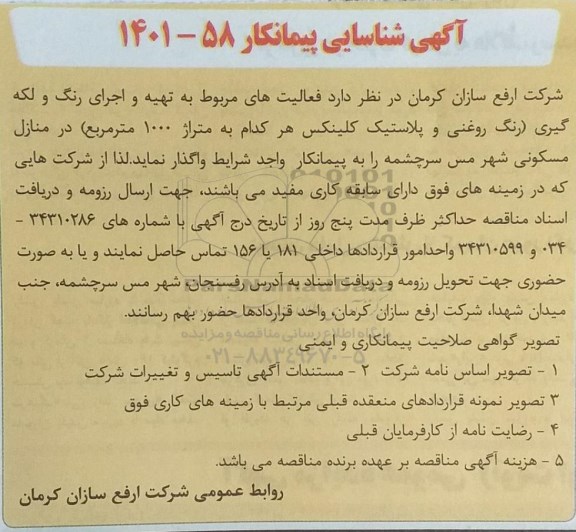 آگهی شناسایی پیمانکار ۵۸ – ۱۴۰۱
شرکت ارفع سازان کرمان در نظر دارد فعالیت های مربوط به تهیه و اجرای رنگ و لکه
گیری (رنگ روغنی و پلاستیک کلینکس هر کدام به متراژ ۱۰۰۰ مترمربع) در منازل
مسکونی شهر مس سرچشمه را به پیمانکار واجد شرایط واگذار نماید.لذا از شرکت هایی
که در زمینه های فوق دارای سابقه کاری مفید می باشند، جهت ارسال رزومه و دریافت
اسناد مناقصه حداکثر ظرف مدت پنج روز از تاریخ درج آگهی با شماره های ۳۴۳۱۰۲۸۶ -
۰۳۴ و ۳۴۳۱۰۵۹۹ واحدامور قراردادها داخلی ۱۸۱ یا ۱۵۶ تماس حاصل نمایند و یا به صورت
حضوری جهت تحویل رزومه و دریافت اسناد به آدرس رفسنجان، شهر مس سرچشمه، جنب
میدان شهدا، شرکت ارفع سازان کرمان، واحد قراردادها حضور بهم رسانند.
پایگاه اطلاع رسانی مناقصه و مزایده
تصویر گواهی صلاحیت پیمانکاری و ایمنی
۰۲۱-۸۸۳۴۹۶۷۰-۵
۱ - تصویر اساس نامه شرکت ۲ - مستندات آگهی تاسیس و تغییرات شرکت
۳ تصویر نمونه قراردادهای منعقده قبلی مرتبط با زمینه های کاری فوق
۴ - رضایت نامه از کارفرمایان قبلی
۵ - هزینه آگهی مناقصه بر عهده برنده مناقصه می باشد.
روابط عمومی شرکت ارفع سازان کرمان